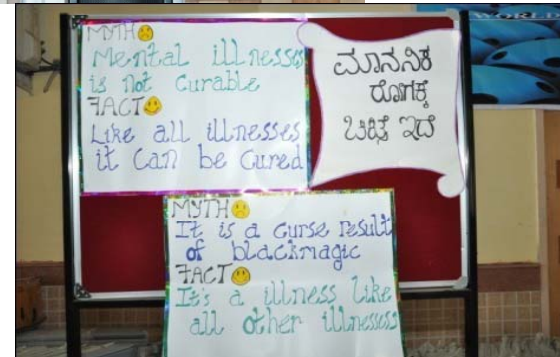 MYTH
Mental illnesses
is not curable
FACT
Like all illnesses
it can be cured
ಮಾನಸಿಕ
ರೋಗಕ್ಕೆ
ಇದೆ
MYTH
It is a curse result
of blackmagic
FACT
It's a illness like
all other illnesses
WORL